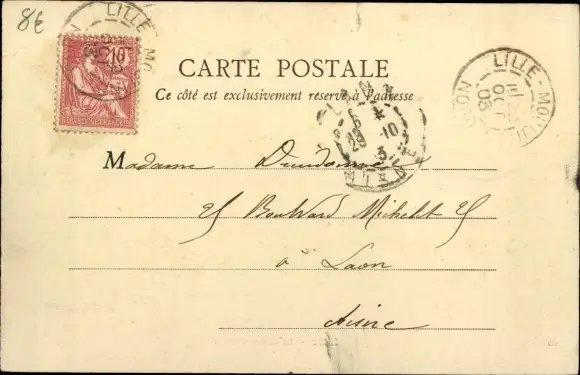 8€
LILLE - MO
10
CARTE POSTALE
Ce côté est exclusivement réservé à l'adresse
LILLE - MO
22
OCT
03
LAON
6
29 -10
3
AISNE
Madame Dieudonné
25 Boulevard Michelet 25
à Laon
Aisne